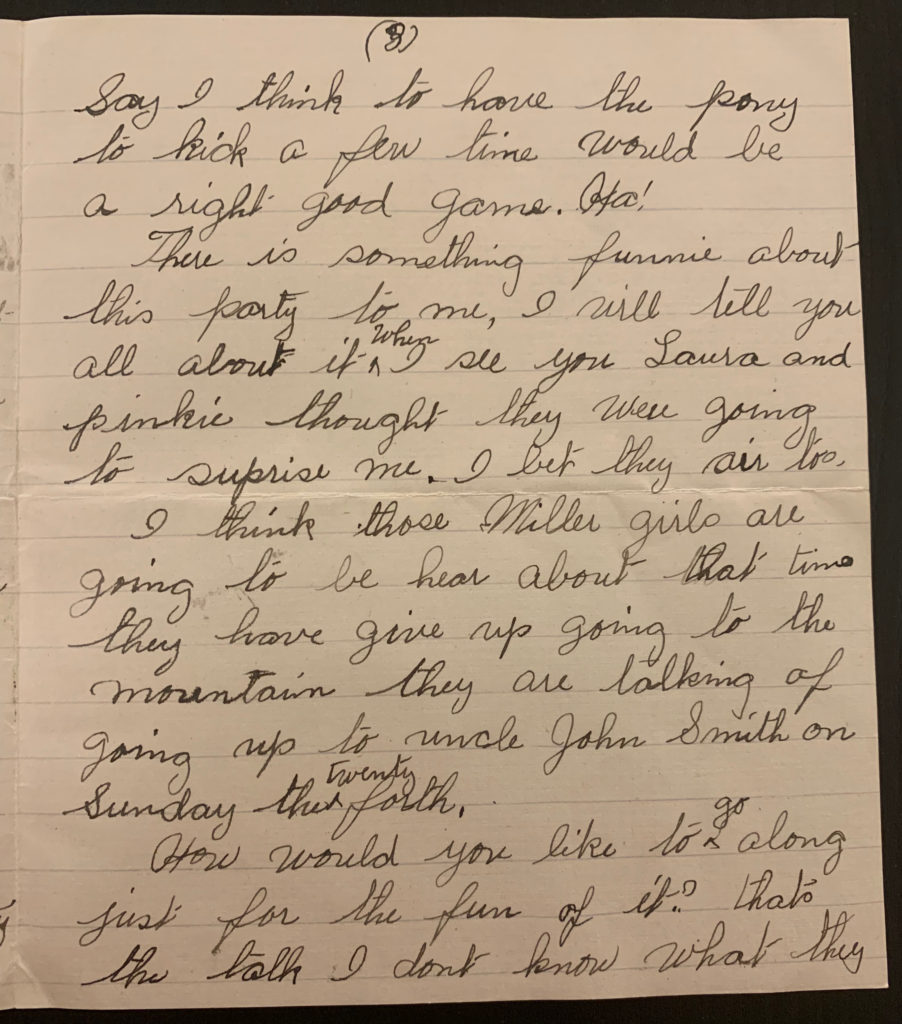 (3)
Say I think to have the pony
to kick a few time would be
a right good game. Ha!
There is something funnie about
this party to me, I will tell you
all about it ^When I see you Laura and
pinkie thought they were going
to suprise me. I bet they air too.
I think those Miller girls are
going to be hear about that time
they have give up going to the
mountain they are talking of
going up to uncle John Smith on
Sunday the ^twenty forth.
How would you like to ^go along
just for the fun of it? thats
the talk I dont know what they